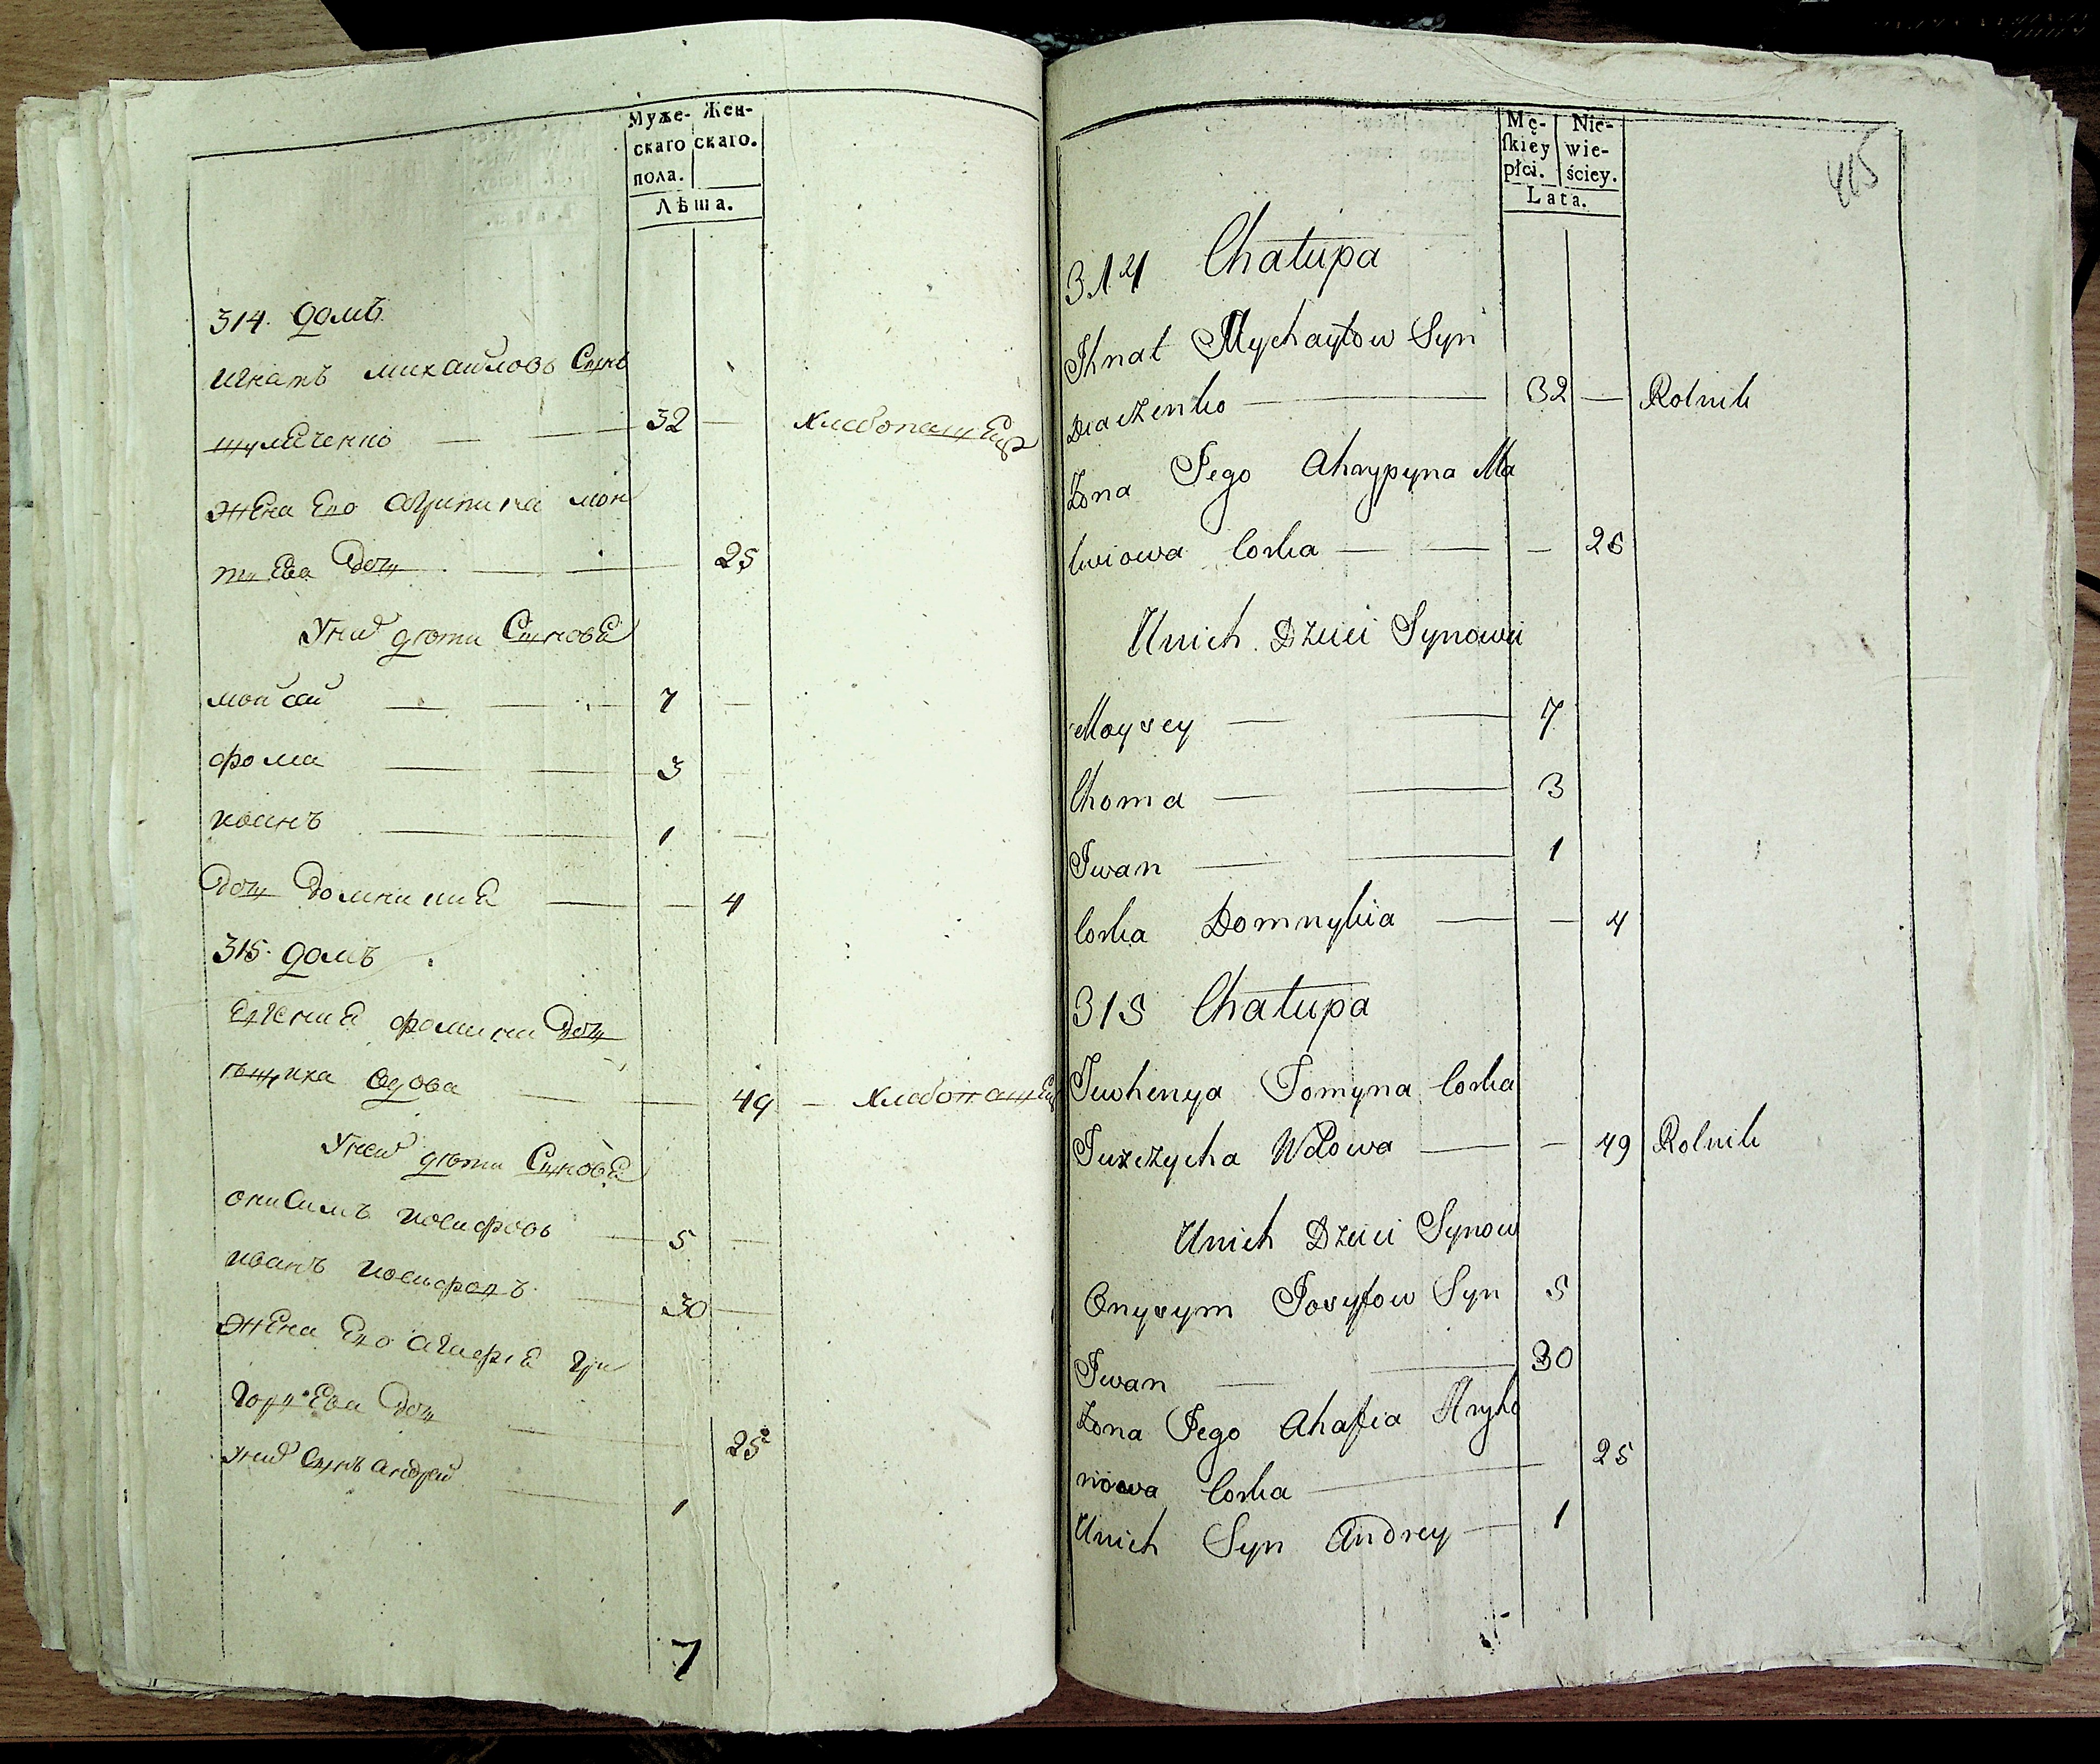 Муже-
скаго
пола.
Жен-
скаго.
Лѣта.
314. домъ
Игнатъ михайловъ Сынъ
32 хлебопашецъ
жена Его Агрипина мои
сеева дочь 25
У них дѣти Сыновья
мойсей 7
фома 3
иванъ 1
дочь домникия 4
315. домъ
Евгения фомина дочь
вдова 49 хлебопашецъ
У нея дѣти Сыновья
онисимъ иосифовъ 5
иванъ иосифовъ 30
жена Его Агафія Гри
горьева дочь 25
У них Сынъ андрей 1
7
Mę-
skiey
płci.
Nie-
wie-
ściey.
Lata.
415
314 Chałupa
Ihnat Mychayłow Syn
Diaczenko 32 Rolnik
Żona Jego Ahrypyna Ma
kwiowa Corka 25
Unich Dzieci Synowie
Moysey 7
Choma 3
Iwan 1
Corka Domnykia 4
315 Chałupa
Juwhenya Fomyna Corka
Wdowa 49 Rolnik
Unich Dzieci Synow
Onysym Josyfow Syn 5
Iwan 30
Żona Jego Ahafia Hryho
riowa Corka 25
Unich Syn Andrey 1